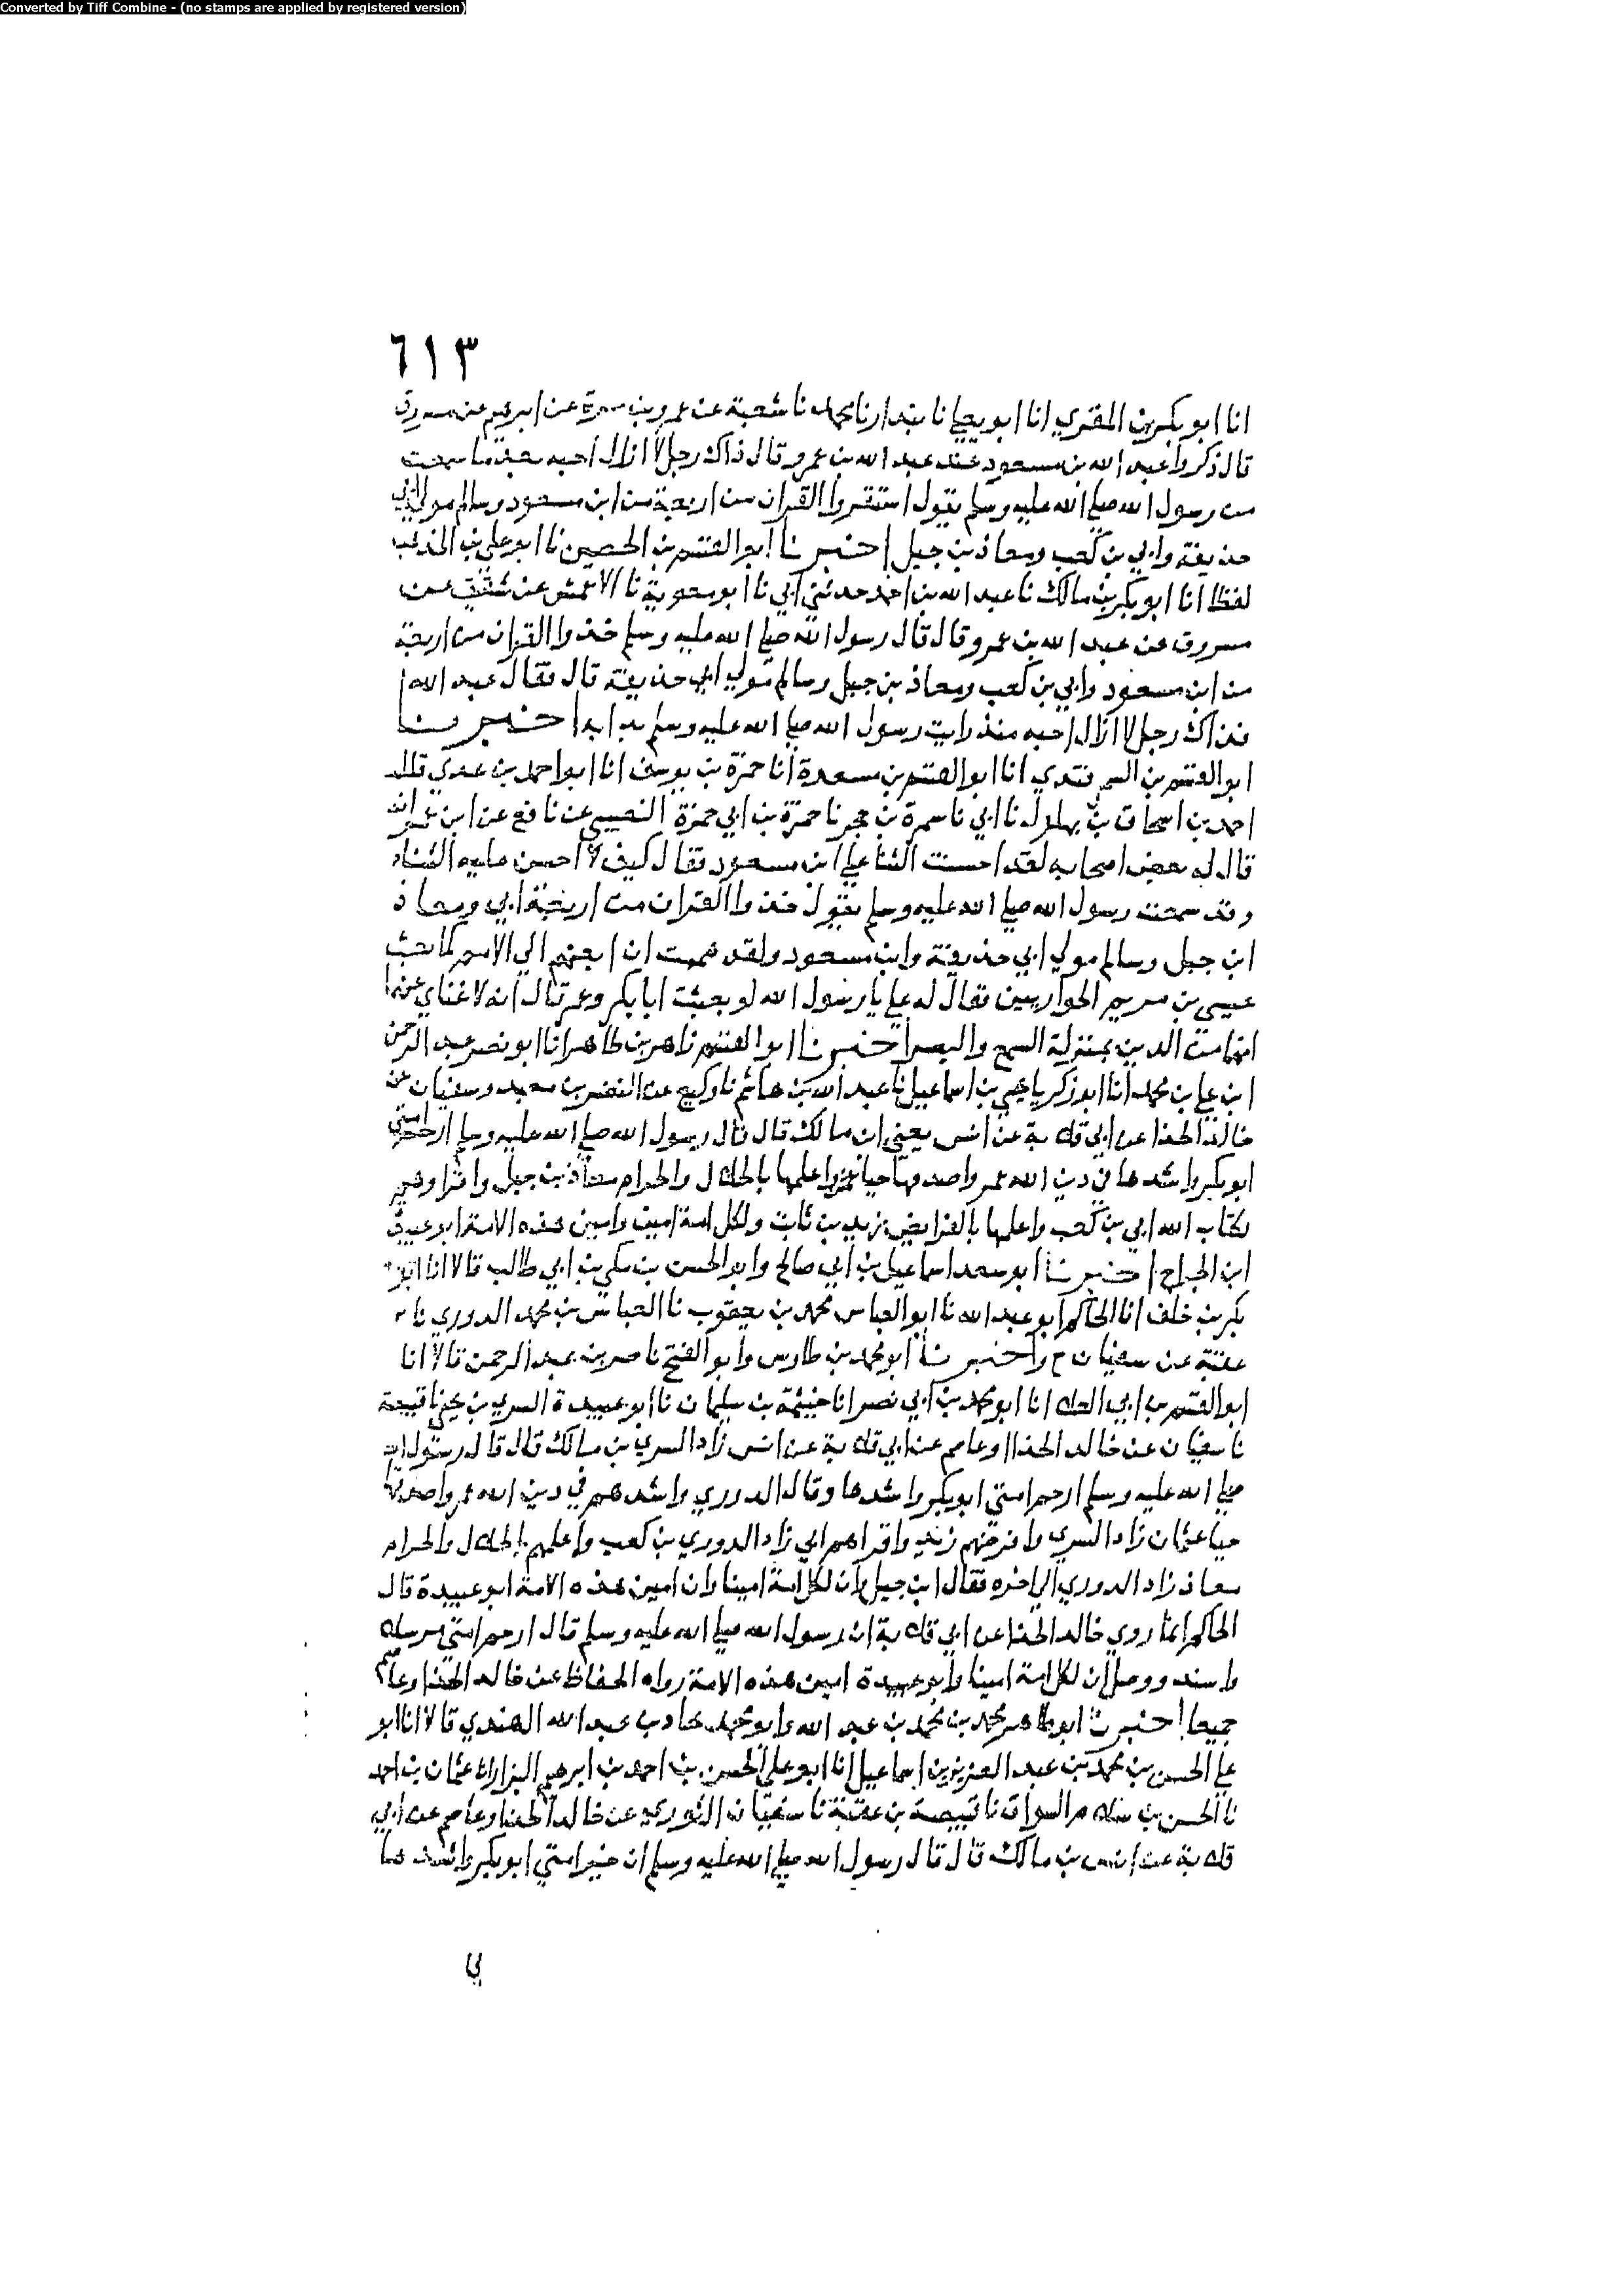 Converted by Tiff Combine - (no stamps are applied by registered version)
٦١٣
انا ابو بكر بن المقري انا ابو يعلي نا بندار نا محمد نا شعبة عن عمرو بن مرة عن ابرهيم عن مسروق
قال ذكروا عبد الله بن مسعود عند عبد الله بن عمرو قال ذاك رجل لا ازال احبه بعد ما سمعت
من رسول الله صلي الله عليه وسلم يقول استقروا القران من اربعة من ابن مسعود وسالم مولي ابي
حذيفة وابي بن كعب ومعاذ بن جبل اخبرنا ابو القسم بن الحصين نا ابو علي بن المذهب
لفظا انا ابو بكر بن مالك نا عبد الله بن احمد حدثني ابي نا ابو معوية نا الاعمش عن شقيق عن
مسروق عن عبد الله بن عمرو قال قال رسول الله صلي الله عليه وسلم خذوا القران من اربعة
من ابن مسعود وابي بن كعب ومعاذ بن جبل وسالم مولي ابي حذيفة قال فقال عبد الله
فذاك رجل لا ازال احبه منذ رايت رسول الله صلي الله عليه وسلم بدا به اخبرنا
ابو القسم بن السمرقندي انا ابو القسم بن مسعدة انا حمزة بن يوسف انا ابو احمد بن عدي قال
احمد بن اسحاق بن بهلول نا ابي نا سمرة بن حجر نا حمزة بن ابي حمزة النصيبي عن نافع عن ابن عمر انه
قال له بعض اصحابه لقد احسنت الثنا علي ابن مسعود فقال كيف لا احسن عليه الثناء
وقد سمعت رسول الله صلي الله عليه وسلم يقول خذوا القران من اربعة ابي ومعاذ
ابن جبل وسالم مولي ابي حذيفة وابن مسعود ولقد هممت ان ابعثهم الي الامم كما بعث
عيسي بن مريم الحواريين فقال له علي يا رسول الله لو بعثت ابا بكر وعمر قال انه لا غناي عنهما
انهما من الدين بمنزلة السمع والبصر اخبرنا ابو القسم زاهر بن طاهر انا ابو نصر عبد الرحمن
ابن علي بن محمد انا ابو زكريا يحيي بن اسماعيل نا عبد الله بن هاشم نا وكيع عن النضر بن معبد وسفيان عن
خالد الحذا عن ابي قلابة عن انس يعني ابن مالك قال قال رسول الله صلي الله عليه وسلم ارحم امتي
ابو بكر واشدها في دين الله عمر واصدقها حيا عثمن واعلمها بالحلال والحرام معاذ بن جبل واقراوهم
لكتاب الله ابي بن كعب واعلمها بالفرايض زيد بن ثابت ولكل امة امين وامين هذه الامة ابو عبيدة
ابن الجراح اخبرنا ابو سعد اسماعيل بن ابي صالح وابو الحسن بن مكي بن ابي طالب قالا انا ابو
بكر بن خلف انا الحاكم ابو عبد الله نا ابو العباس محمد بن يعقوب نا العباس بن محمد الدوري نا
عقبة عن سفيان ح واخبرنا ابو محمد بن طاوس وابو الفتح ناصر بن عبد الرحمن قالا انا
ابو القسم بن ابي العلا انا ابو محمد بن ابي نصر انا خيثمة بن سليمان نا ابو عبيدة السري بن يحيي نا قبيصة
نا سفيان عن خالد الحذا وعاصم عن ابي قلابة عن انس زاد السري بن مالك قال قال رسول الله
صلي الله عليه وسلم ارحم امتي ابو بكر واشدها وقال الدوري واشدهم في دين الله عمر واصدقها
حيا عثمان زاد السري وافرضهم زيد واقراهم ابي زاد الدوري بن كعب واعلمهم بالحلال والحرام
معاذ زاد الدوري الي اخره فقال ابن جبل وان لكل امة امينا وان امين هذه الامة ابو عبيدة قال
الحاكم انما روي خالد الحذا عن ابي قلابة ان رسول الله صلي الله عليه وسلم قال ارحم امتي مرسله
واسند ووصل ان لكل امة امينا وابو عبيدة امين هذه الامة رواه الحفاظ عن خالد الحذا وعاصم
جميعا اخبرنا ابو طاهر محمد بن محمد بن عبد الله وابو محمد بن عبد الله الهندي قالا انا ابو
علي الحسن بن محمد بن عبد العزيز بن اسماعيل انا ابو علي الحسن بن احمد بن ابرهيم البزار انا عثمان بن احمد
نا الحسن بن سلام السواق نا قبيصة بن عقبة نا سفيان الثوري عن خالد الحذا وعاصم عن ابي
قلابة عن انس بن مالك قال قال رسول الله صلي الله عليه وسلم ان خير امتي ابو بكر واشدها
في